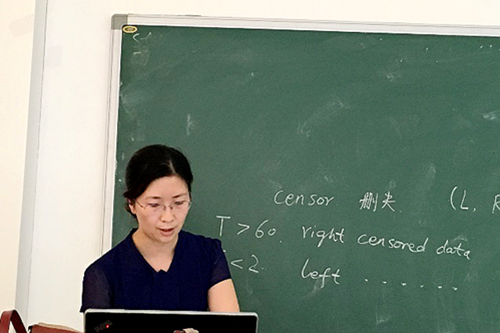 censor 删失 (L, R
T>60. right censored data
<2. left ......